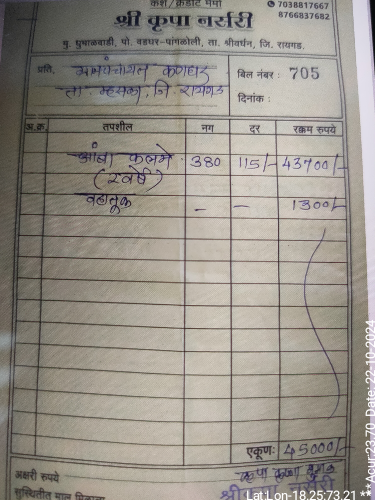 कॅश/क्रेडीट मेमो
7038817667
8766837682
श्री कृपा नर्सरी
मु. घुषाळवाडी, पो. वडघर-पांगळोली, ता. श्रीवर्धन, जि. रायगड.
प्रति, ग्रामपंचायत
बिल नंबर : 705
ता. म्हसळा, जि. रायगड
दिनांक :
अ.क्र. तपशील नग दर रक्कम रुपये
आंबा कलमे 380 115/- 43700/-
(2वर्षे)
वाहतूक - - 1300/-
एकूण: 45000/-
अक्षरी रुपये
सुस्थितीत माल मिळाला
Lat Lon-18.25:73.21 ** Acur:23.70 Date: 22-10-2024